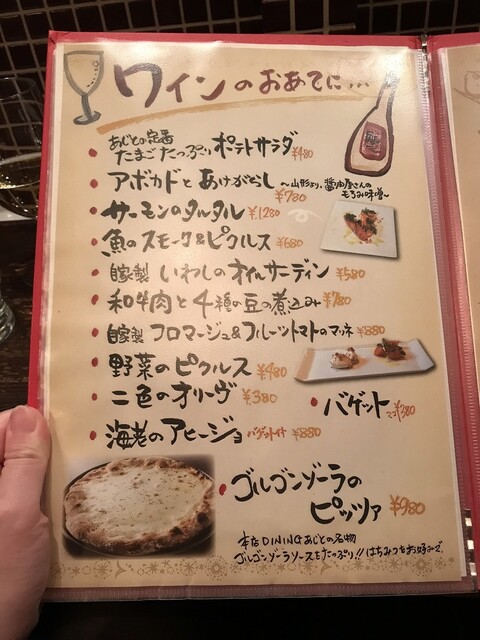 ワインのおあてに…
あじとの定番
たまごたっぷりポテトサラダ ¥480
アボカドとあけがらし ～山形より、醤油屋さんの
もろみ味噌～
¥780
サーモンのタルタル ¥1,280
魚のスモーク&ピクルス ¥680
自家製 いわしのオイルサーディン ¥580
和牛肉と4種の豆の煮込み ¥780
自家製 フロマージュ&フルーツトマトのマリネ ¥880
野菜のピクルス ¥480
二色のオリーヴ ¥380
バゲット ¥380
海老のアヒージョ バゲット付 ¥880
ゴルゴンゾーラの
ピッツァ ¥980
本店DININGあじとの名物
ゴルゴンゾーラソースをたっぷり!!はちみつをお好みで。